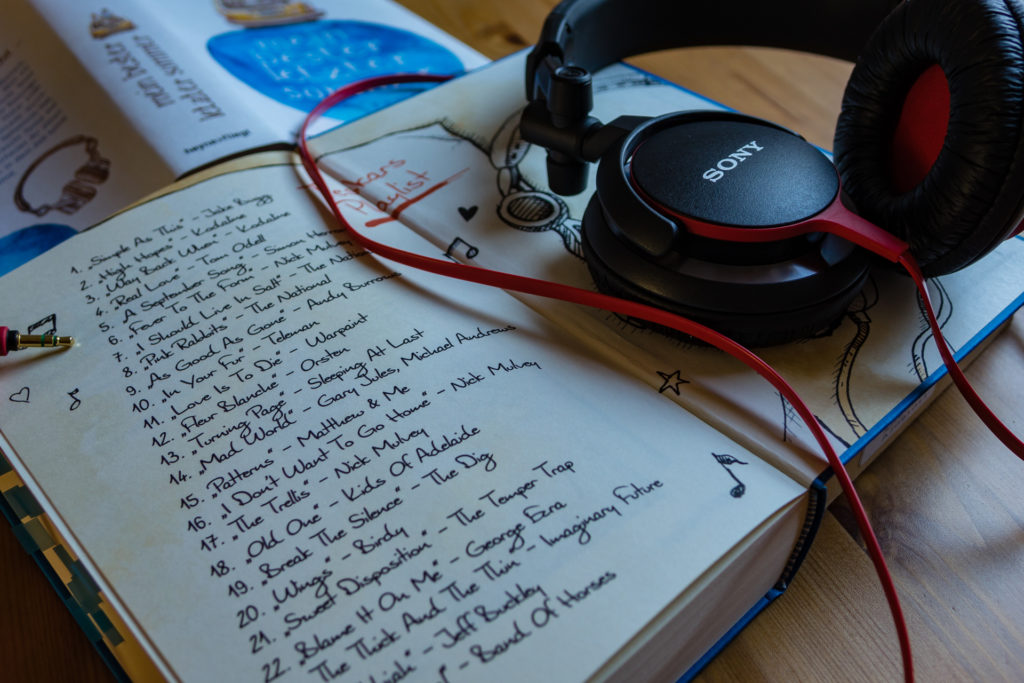 mein bester
letzter sommer
heyne›fliegt
Playlist
1. „Simple As This" - Jake Bugg
2. „High Hopes" - Kodaline
3. „Way Back When" - Kodaline
4. „Real Love" - Tom Odell
5. „A September Song" - Simon
6. „Fever To The Form" - Nick Mulvey
7. „I Should Live In Salt" - The
8. „Pink Rabbits" - The National
9. „As Good As Gone" - Andy Burrows
10. „In Your Fur" - Teleman
11. „Love Is To Die" - Warpaint
12. „Fleur Blanche" - Orsten
13. „Turning Page" - Sleeping At Last
14. „Mad World" - Gary Jules, Michael Andrews
15. „Patterns" - Matthew & Me
16. „I Don't Want To Go Home" - Nick Mulvey
17. „The Trellis" - Nick Mulvey
18. „Old One" - Kids Of Adelaide
19. „Break The Silence" - The Dig
20. „Wings" - Birdy
21. „Sweet Disposition" - The Temper Trap
22. „Blame It On Me" - George Ezra
The Thick And The Thin - Imaginary Future
- Jeff Buckley
- Band Of Horses
SONY